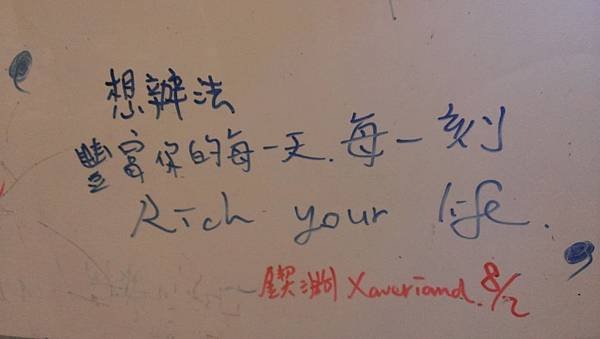 想辦法
豐富你的每一天.每一刻
Rich your life.
Xaveriamd. 8/2